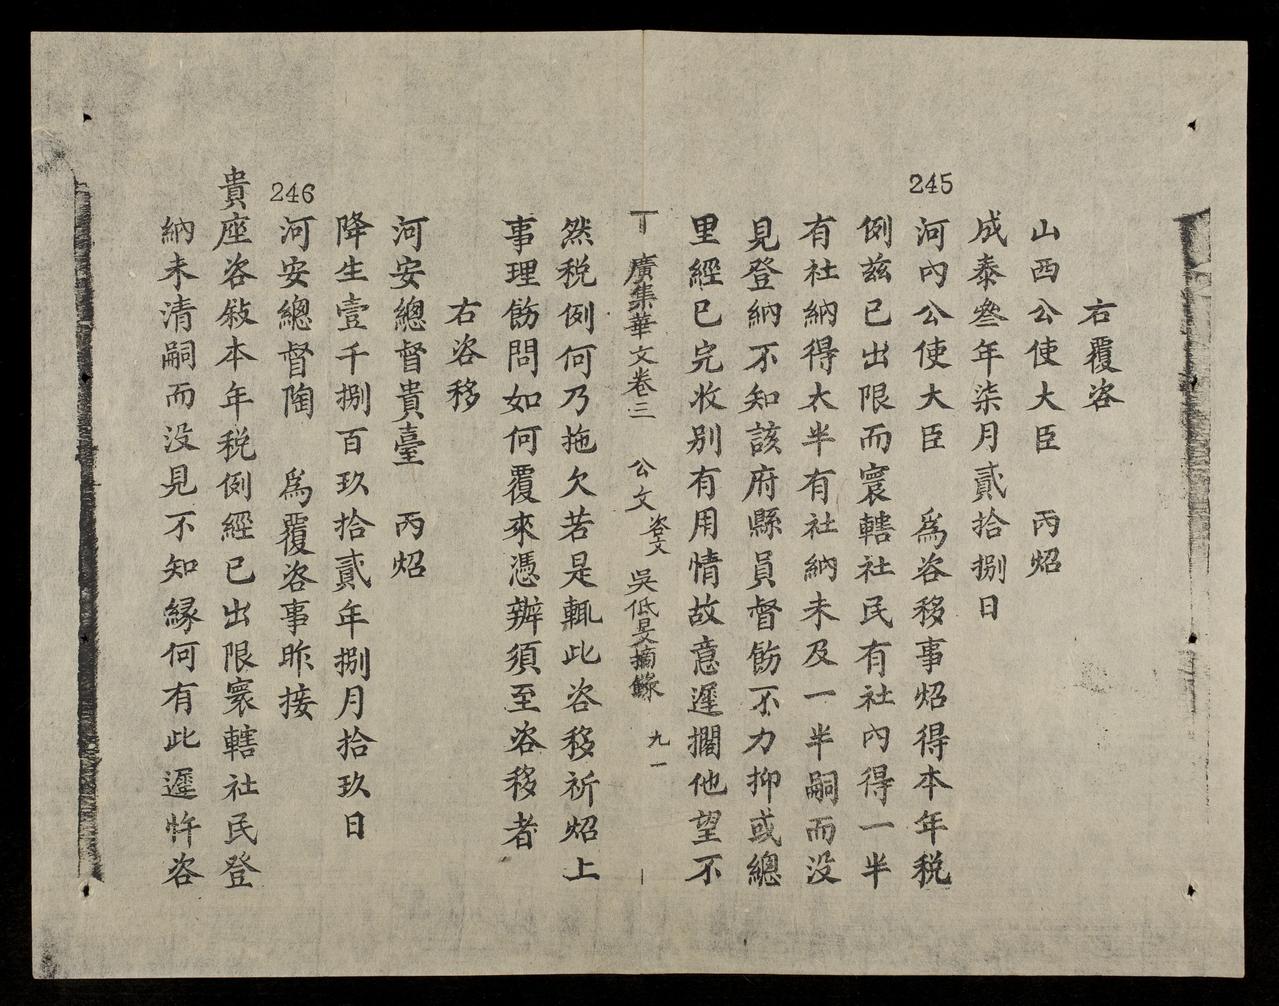 右覆咨
山西公使大臣　丙炤
成泰叄年柒月貳拾捌日
245
河內公使大臣　爲咨移事炤得本年税
例兹已出限而寰轄社民有社內得一半
有社納得太半有社納未及一半嗣而没
見登納不知該府縣員督飭不力抑或總
里經已完收别有用情故意遲擱他望不
廣集華文卷三　公文咨文　吳低旻摘錄　九一
然税例何乃拖欠若是輒此咨移祈炤上
事理飭問如何覆來憑辦須至咨移者
右咨移
河安總督貴臺　丙炤
降生壹千捌百玖拾貳年捌月拾玖日
246
河安總督陶　爲覆咨事昨接
貴座咨敍本年税例經已出限寰轄社民登
納未清嗣而没見不知緣何有此遲忤咨